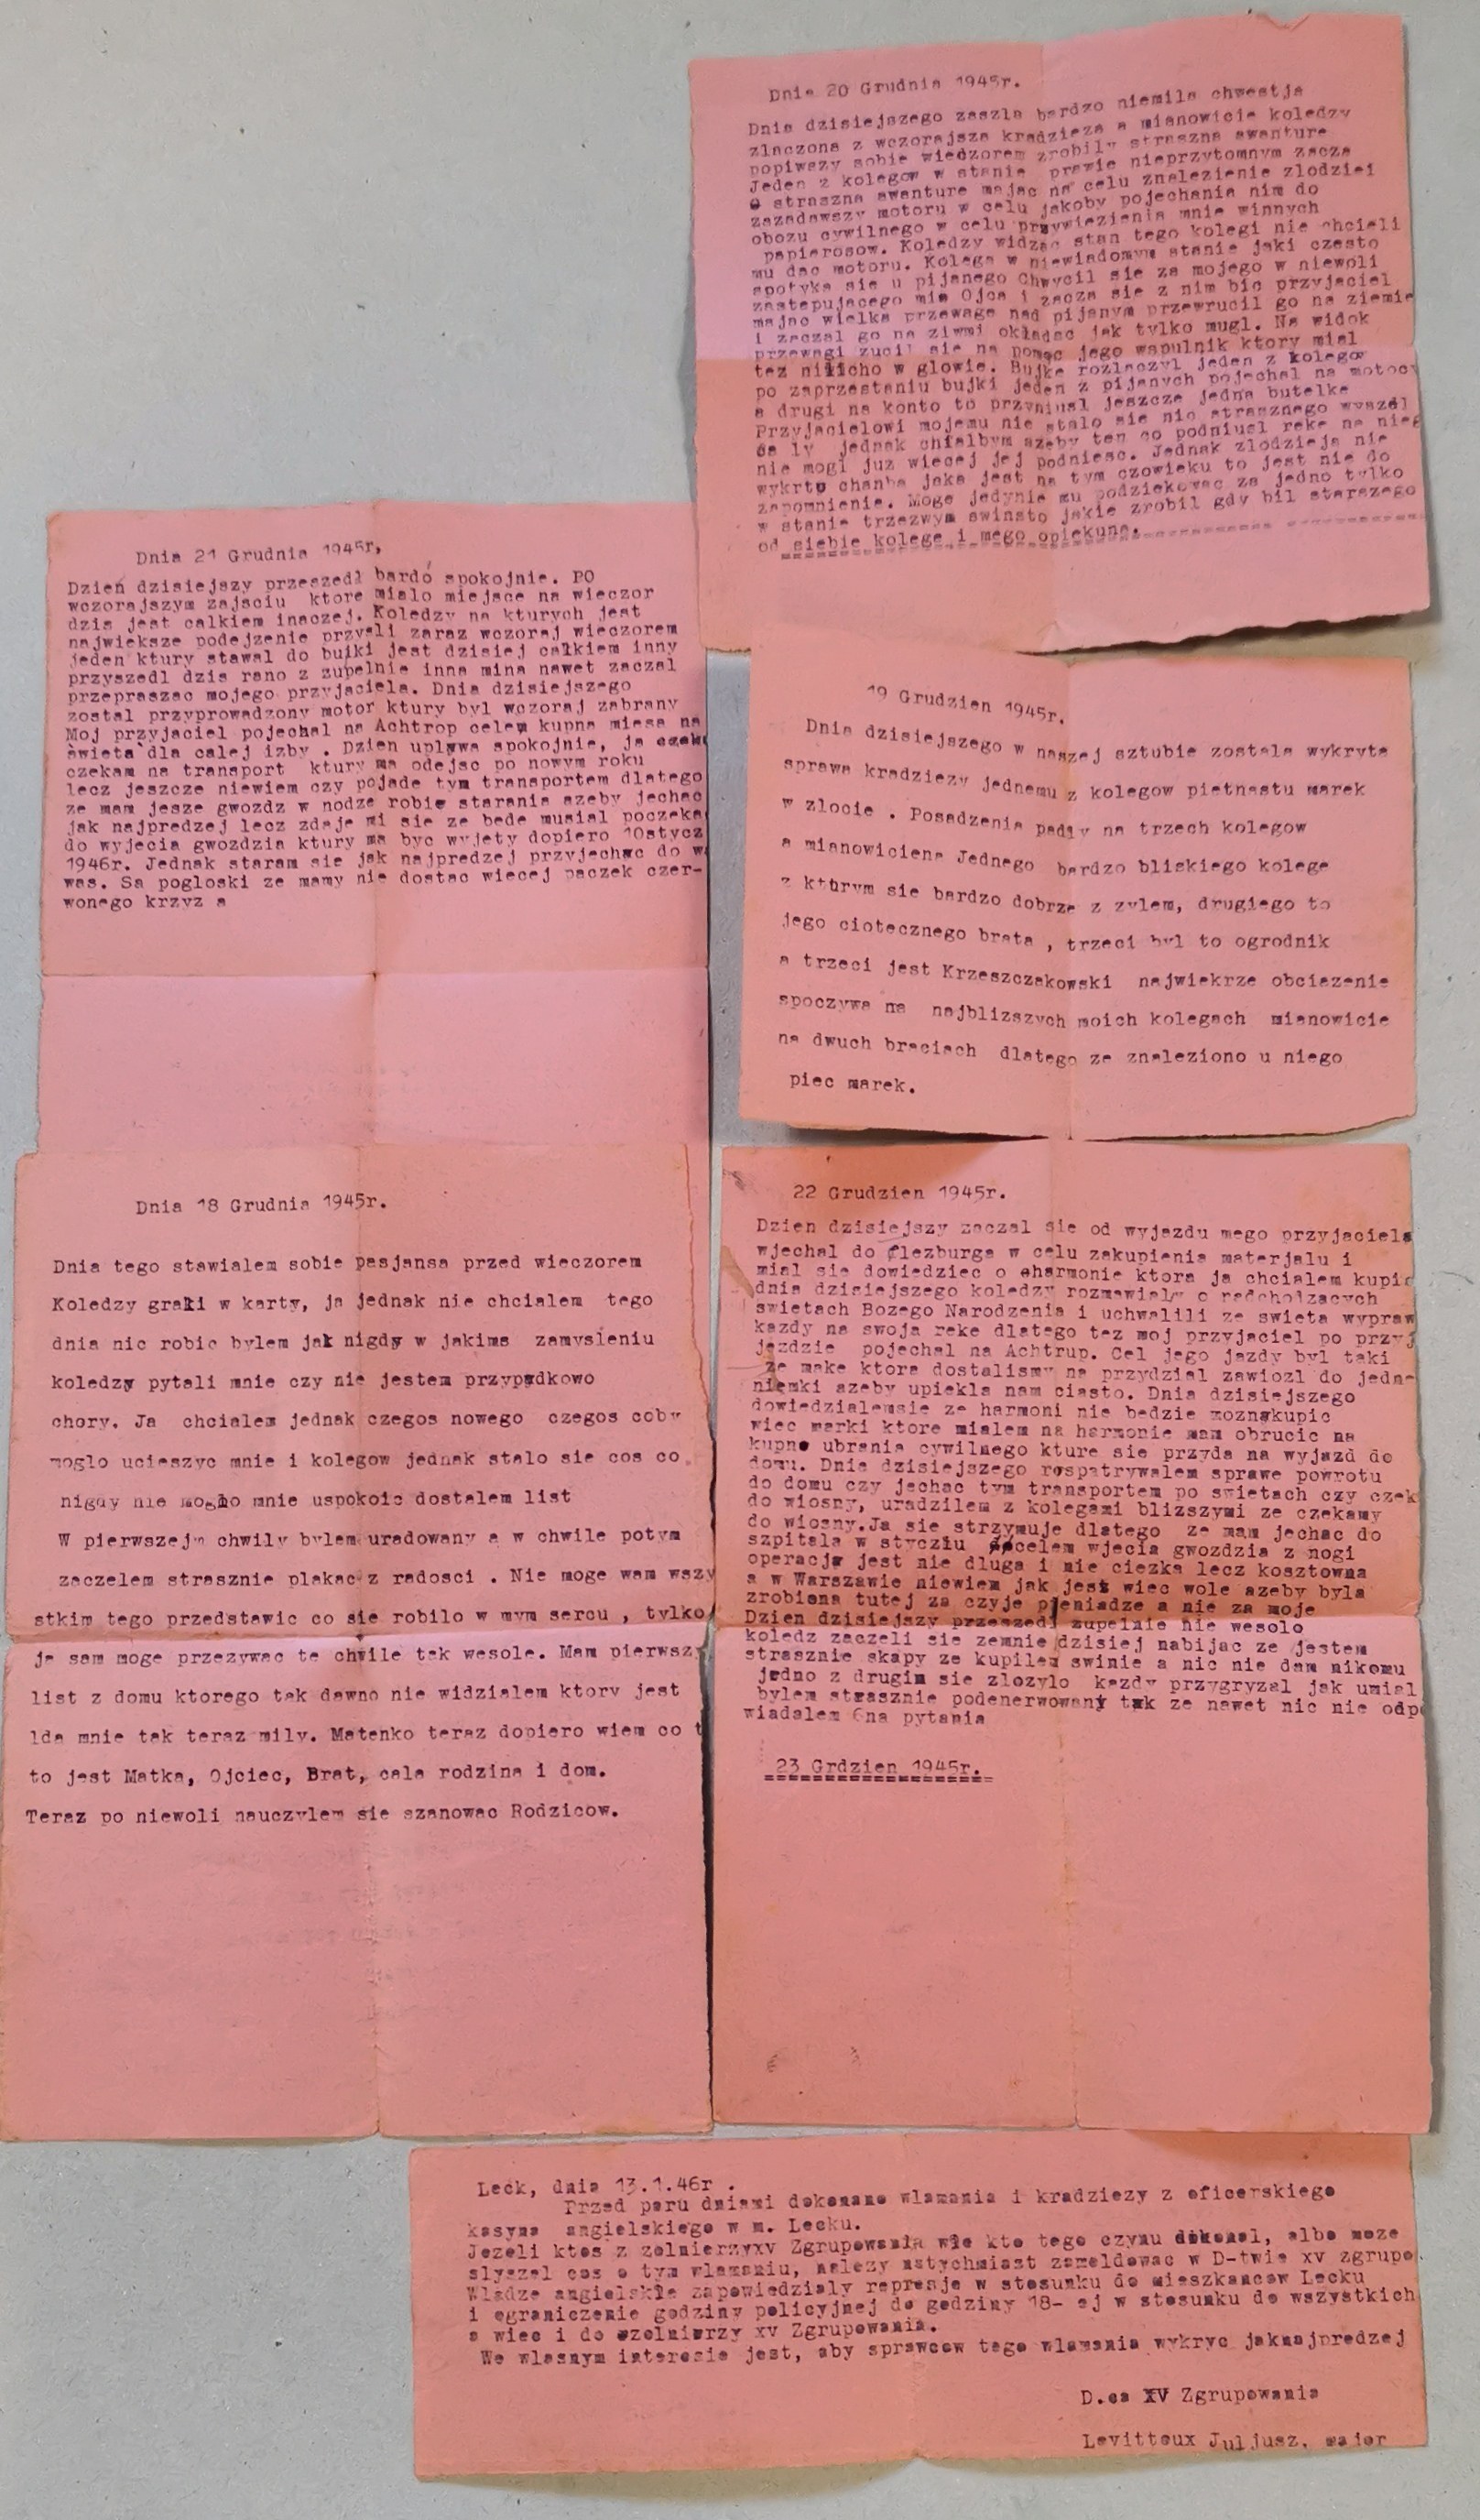 Dnia 20 Grudnia 1945r.
Dnia dzisiejszego zaszla bardzo niemila chwestja
zlaczona z wczorajsza kradzieza a mianowicie koledzy
popiwszy sobie wiedzorem zrobily straszna awanture
Jeden z kolegow w stanie prawie nieprzytomnym zacza
straszna awanture majac na celu znalezienie zlodziei
zazadawszy motoru w celu jakoby pojechania nim do
obozu cywilnego w celu przywiezienia mnie winnych
papierosow. Koledzy widzac stan tego kolegi nie chcieli
mu dac motoru. Kolega w niewiadomym stanie jaki czesto
spotyka sie u pijanego Chwycil sie za mojego w niewoli
zastepujacego mia Ojca i zacza sie z nim bic przyjaciel
majac wielka przewage nad pijanym przewrucil go na ziemie
i zaczal go na ziwmi okladac jak tylko mugl. Na widok
przewagi zucil sie na pomoc jego wspulnik ktory mial
tez nilicho w glowie. Bujke rozlaczyl jeden z kolegow
po zaprzestaniu bujki jeden z pijanych pojechal na motocy
a drugi na konto to przyniusl jeszcze jedna butelke
Przyjacielowi mojemu nie stalo sie nic strasznego wyszdl
ca ly jednak chialbym azeby ten co podniusl reke na nieg
nie mogl juz wiecej jej podniesc. Jednak zlodzieja nie
wykrto chanba jaka jest na tym czowieku to jest nie do
zapomnienie. Moge jedynie mu podziekowac za jedno tylko
w stanie trzezwym swinsto jakie zrobil gdy bil starszego
od siebie kolege i mego opiekuna.
Dnia 21 Grudnia 1945r,
Dzien dzisiejszy przeszedl bardo spokojnie. PO
wczorajszym zajsciu ktore mialo miejsce na wieczor
dzis jest calkiem inaczej. Koledzy na kturych jest
najwieksze podejzenie przyali zaraz wczoraj wieczorem
jeden ktury stawal do bujki jest dzisiej calkiem inny
przyszedl dzis rano z zupelnie inna mina nawet zaczal
przepraszac mojego przyjaciela. Dnia dzisiejszego
zostal przyprowadzony motor ktury byl wczoraj zabrany
Moj przyjaciel pojechal na Achtrop celem kupna miesa na
swieta dla calej izby . Dzien uplywa spokojnie, ja czek
czekam na transport ktury ma odejsc po nowym roku
lecz jeszcze niewiem czy pojade tym transportem dlatego
ze mam jesze gwozdz w nodze robie starania azeby jechac
jak najpredzej lecz zdaje mi sie ze bede musial poczeka
do wyjecia gwozdzia ktury ma byc wyjety dopiero 10stycz
1946r. Jednak staram sie jak najpredzej przyjechac do w
was. Sa pogloski ze mamy nie dostac wiecej paczek czer-
wonego krzyz a
19 Grudzien 1945r.
Dnia dzisiejszego w naszej sztubie zostala wykryta
sprawa kradziezy jednemu z kolegow pietnastu marek
w zlocie . Posadzenia padly na trzech kolegow
a mianowiciena Jednego bardzo bliskiego kolege
z kturym sie bardzo dobrze z zylem, drugiego to
jego ciotecznego brata , trzeci byl to ogrodnik
a trzeci jest Krzeszczakowski najwiekrze obciazenie
spoczywa na najblizszych moich kolegach mianowicie
na dwuch braciach dlatego ze znaleziono u niego
piec marek.
Dnia 18 Grudnia 1945r.
Dnia tego stawialem sobie pasjansa przed wieczorem
Koledzy grali w karty, ja jednak nie chcialem tego
dnia nic robic bylem jak nigdy w jakims zamysleniu
koledzy pytali mnie czy nie jestem przypadkowo
chory. Ja chcialem jednak czegos nowego czegos coby
moglo ucieszyc mnie i kolegow jednak stalo sie cos co
nigdy nie moglo mnie uspokoic dostalem list
W pierwszejm chwily bylem uradowany a w chwile potym
zaczelem strasznie plakac z radosci . Nie moge wam wszy
stkim tego przedstawic co sie robilo w mym sercu , tylko
ja sam moge przezywac te chwile tak wesole. Mam pierwszy
list z domu ktorego tak dawno nie widzialem ktory jest
lda mnie tak teraz mily. Matenko teraz dopiero wiem co t
to jest Matka, Ojciec, Brat, cala rodzina i dom.
Teraz po niewoli nauczylem sie szanowac Rodzicow.
22 Grudzien 1945r.
Dzien dzisiejszy zaczal sie od wyjazdu mego przyjaciela
wjechal do flezburga w celu zakupienia materjalu i
mial sie dowiedziec o aharmonie ktora ja chcialem kupic
dnia dzisiejszego koledzy rozmawialy o nadchodzacych
swietach Bozego Narodzenia i uchwalili ze swieta wypraw
kazdy na swoja reke dlatego tez moj przyjaciel po przyj
jezdzie pojechal na Achtrup. Cel jego jazdy byl taki
ze make ktora dostalismy na przydzial zawiozl do jedne
niemki azeby upiekla nam ciasto. Dnia dzisiejszego
dowiedzialemsie ze harmoni nie bedzie moznakupic
wiec marki ktore mialem na harmonie mam obrucic na
kupno ubrania cywilnego kture sie przyda na wyjazd do
domu. Dnia dzisiejszego rospatrywalem sprawe powrotu
do domu czy jechac tym transportem po swietach czy czek
do wiosny, uradzilem z kolegami blizszymi ze czekamy
do wiosny.Ja sie strzymuje dlatego ze mam jechac do
szpitala w styczlu celem wjecia gwozdzia z nogi
operacja jest nie dluga i nie ciezka lecz kosztowna
a w Warszawie niewiem jak jest wiec wole azeby byla
zrobiona tutej za czyje pieniadze a nie za moje
Dzien dzisiejszy przeszedl zupelnie nie wesolo
koledz zaczeli sie zemnie dzisiej nabijac ze jestem
strasznie skapy ze kupilem swinie a nic nie dam nikomu
jedno z drugim sie zlozylo kazdy przygryzal jak umial
bylem strasznie podenerwowany tak ze nawet nic nie odpo
wiadalem 6na pytania
23 Grdzien 1945r.
Leck, dnia 13.1.46r .
Przed paru dniami dokonano wlamania i kradziezy z oficerskiego
kasyna angielskiego w m. Lecku.
Jezeli ktos z zolnierzyxv Zgrupowania wie kto tego czynu dokonal, albo moze
slyszal cos o tym wlamaniu, nalezy natychmiast zameldowac w D-twie xv zgrupo
Wladze angielskie zapowiedzialy represje w stosunku do mieszkancow Lecku
i ograniczenie godziny policyjnej do godziny 18- ej w stosunku do wszystkich
a wiec i do zolnierzy xv Zgrupowania.
We wlasnym interesie jest, aby sprawcow tego wlamania wykryc jaknajpredzej
D.ca XV Zgrupowania
Levittoux Juljusz, major